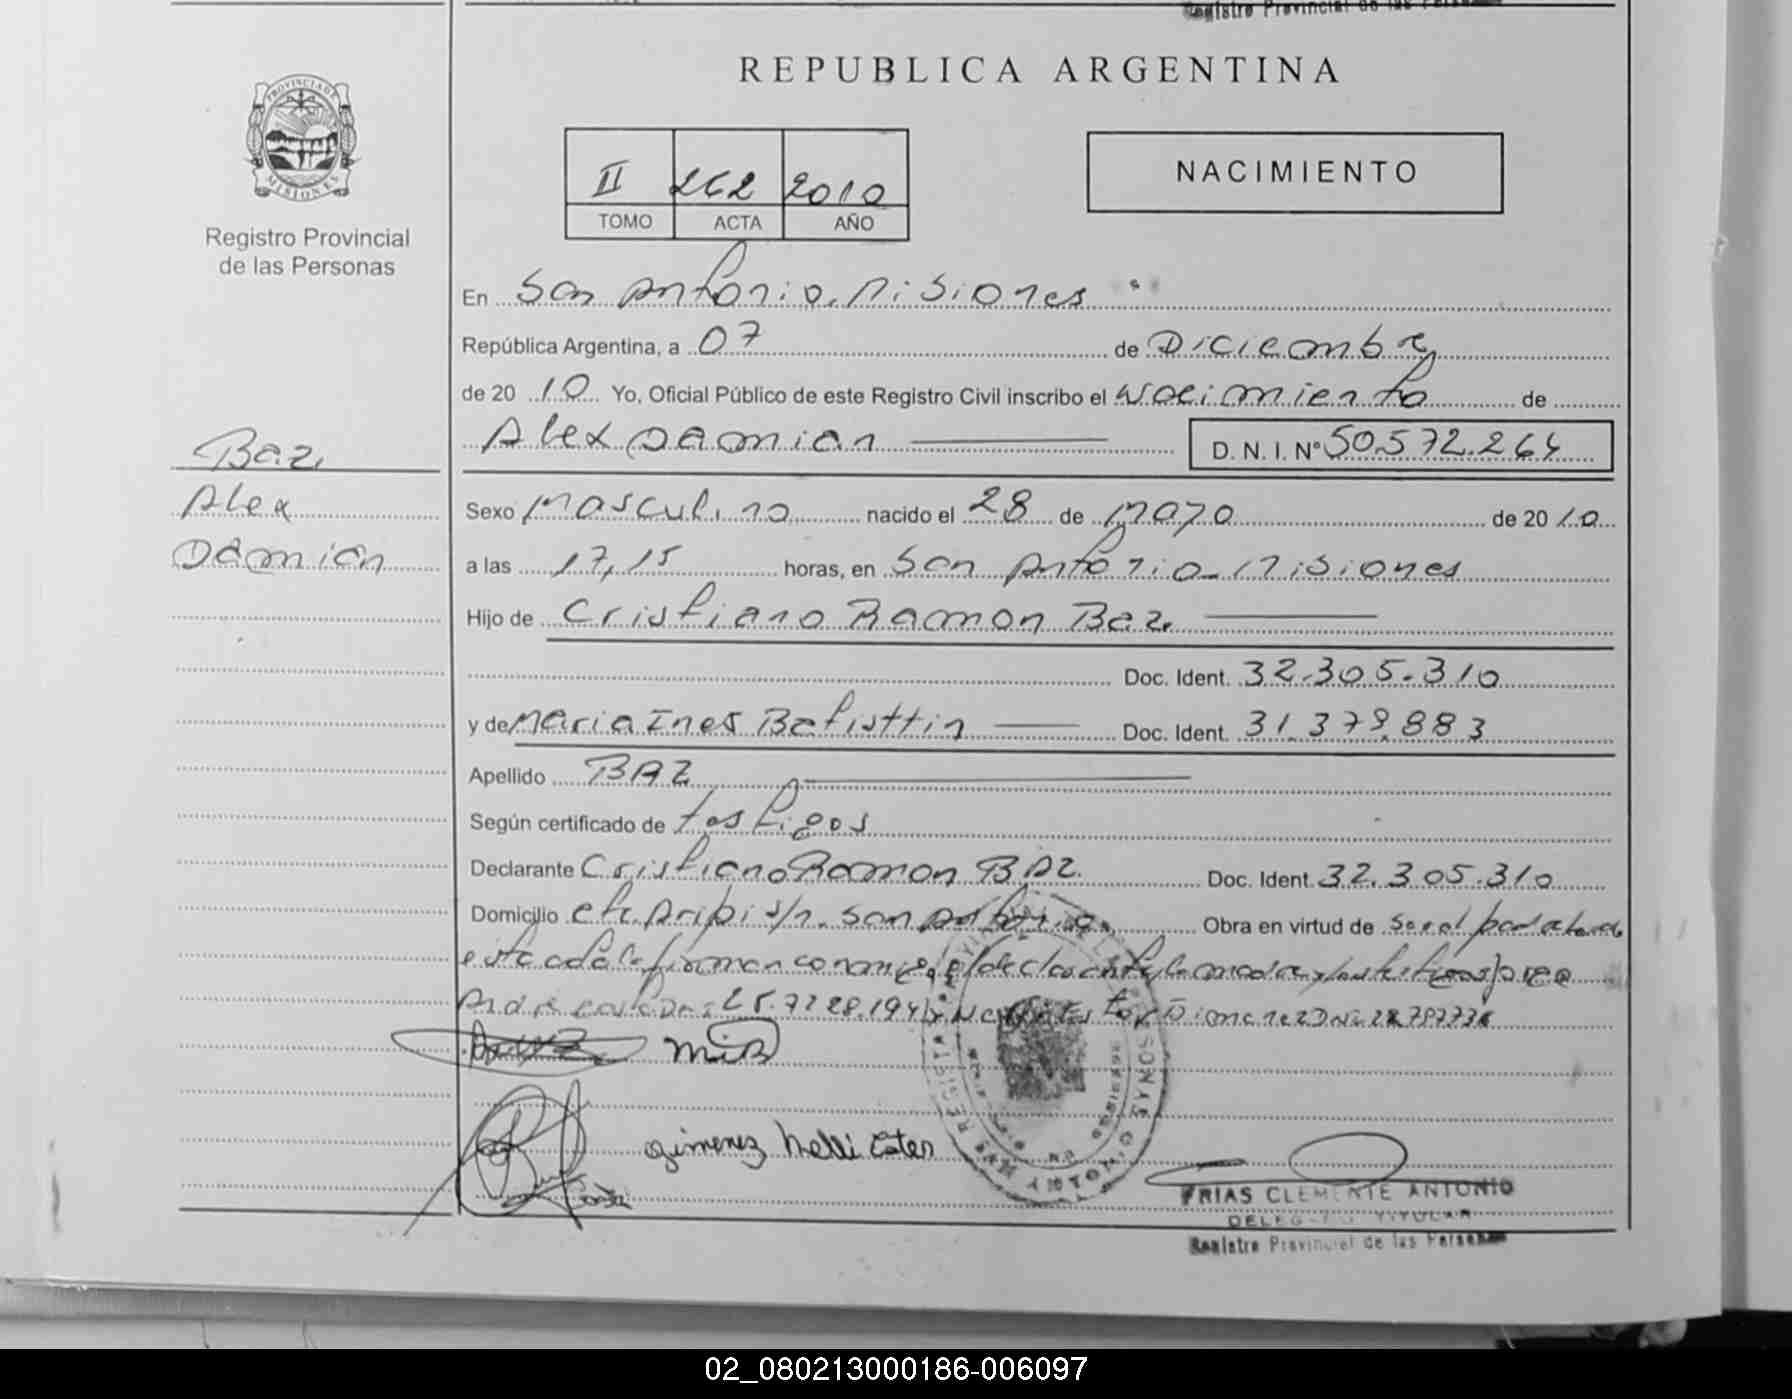 Registro Provincial de las Personas
REPUBLICA ARGENTINA
PROVINCIA DE
MISIONES
Registro Provincial
de las Personas
II 262 2010
TOMO ACTA AÑO
NACIMIENTO
En San Antonio, Misiones
República Argentina, a 07 de Diciembre
de 2010 Yo, Oficial Público de este Registro Civil inscribo el Nacimiento de
Alex Damian D. N. I. Nº 50.572.264
Baz,
Alex
Damián
Sexo Masculino nacido el 28 de Mayo de 2010
a las 17,15 horas, en San Antonio - Misiones
Hijo de Cristiano Ramon Baz.
Doc. Ident. 32.305.310
y de Maria Ines Batisttin Doc. Ident. 31.379.883
Apellido BAZ
Según certificado de testigos
Declarante Cristiano Ramon BAZ. Doc. Ident. 32.305.310
Domicilio San Antonio Obra en virtud de
esta acta firman conmigo el declarante, la madre y los testigos
MIB
Gimenez Nelli Ester
FRIAS CLEMENTE ANTONIO
DELEGADO TITULAR
Registro Provincial de las Personas
02_080213000186-006097